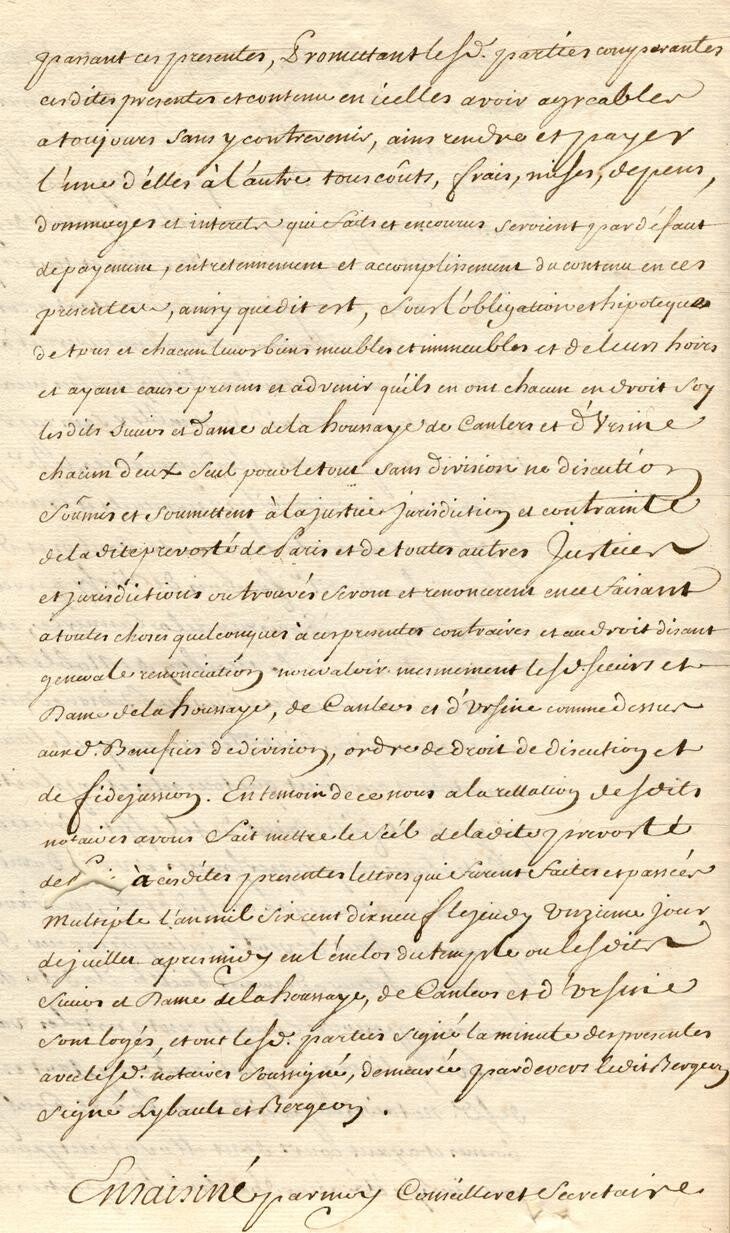 passant ces presentes, Promettant lesd. parties comparantes
cesdites presentes et contenu en icelles avoir agreables
a toujours sans y contrevenir, ains rendre et payer
l'une d'elles à l'autre tous coûts, frais, mises, depens,
dommages et interets qui faits et encourus seroient par défaut
de payement, entretennement et accomplissement du contenu en ces
presentes, ainsy que dit est, sous l'obligation et hipoteque
de tous et chacun leurs biens meubles et immeubles et de leurs hoirs
et ayant cause presens et advenir qu'ils en ont chacun en droit soy
lesdits Sieurs et Dame de la houssaye de Canlers et d'Ursine
chacun d'eux seul pour le tout sans division ne discution
soumis et soumettent à la justice jurisdiction et contrainte
de ladite prevosté de Paris et de toutes autres Justices
et jurisdictions ou trouvés seront et renoncerent en ce faisant
a toutes choses quelconques à ces presentes contraires et au droit disant
generale renonciation non valoir mesmement lesd. sieurs et
Dame de la houssaye, de Canlers et d'Ursine comme dessus
aux d. Benefices de division, ordre de droit de discution et
de fidejussion. En temoin de ce nous a la rellation desdits
notaires avons fait mettre le Scél de ladite prevosté
de à cesdites presentes lettres qui furent faites et passées
multiple l'an mil six cent dix neuf le jeudy unzieme jour
de juillet apres midy en l'énclos du temple ou lesdits
Sieurs et Dame de la houssaye, de Canlers et d'Ursine
sont logés, et ont lesd. parties signé la minute des presentes
avec lesd. notaires soussigné, demeurée pardevers ledit Bergeon
signé Lybault et Bergeon.
Ensaisiné par moy Conseiller et Secretaire